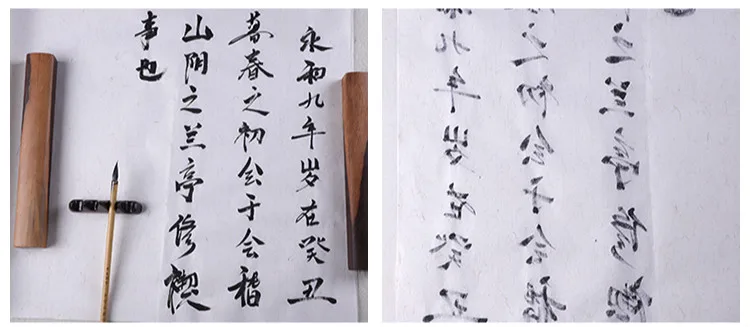 永和九年岁在癸丑
暮春之初会于会稽
山阴之兰亭修禊
事也
九年岁在癸丑
之初会于会稽
之兰亭修禊